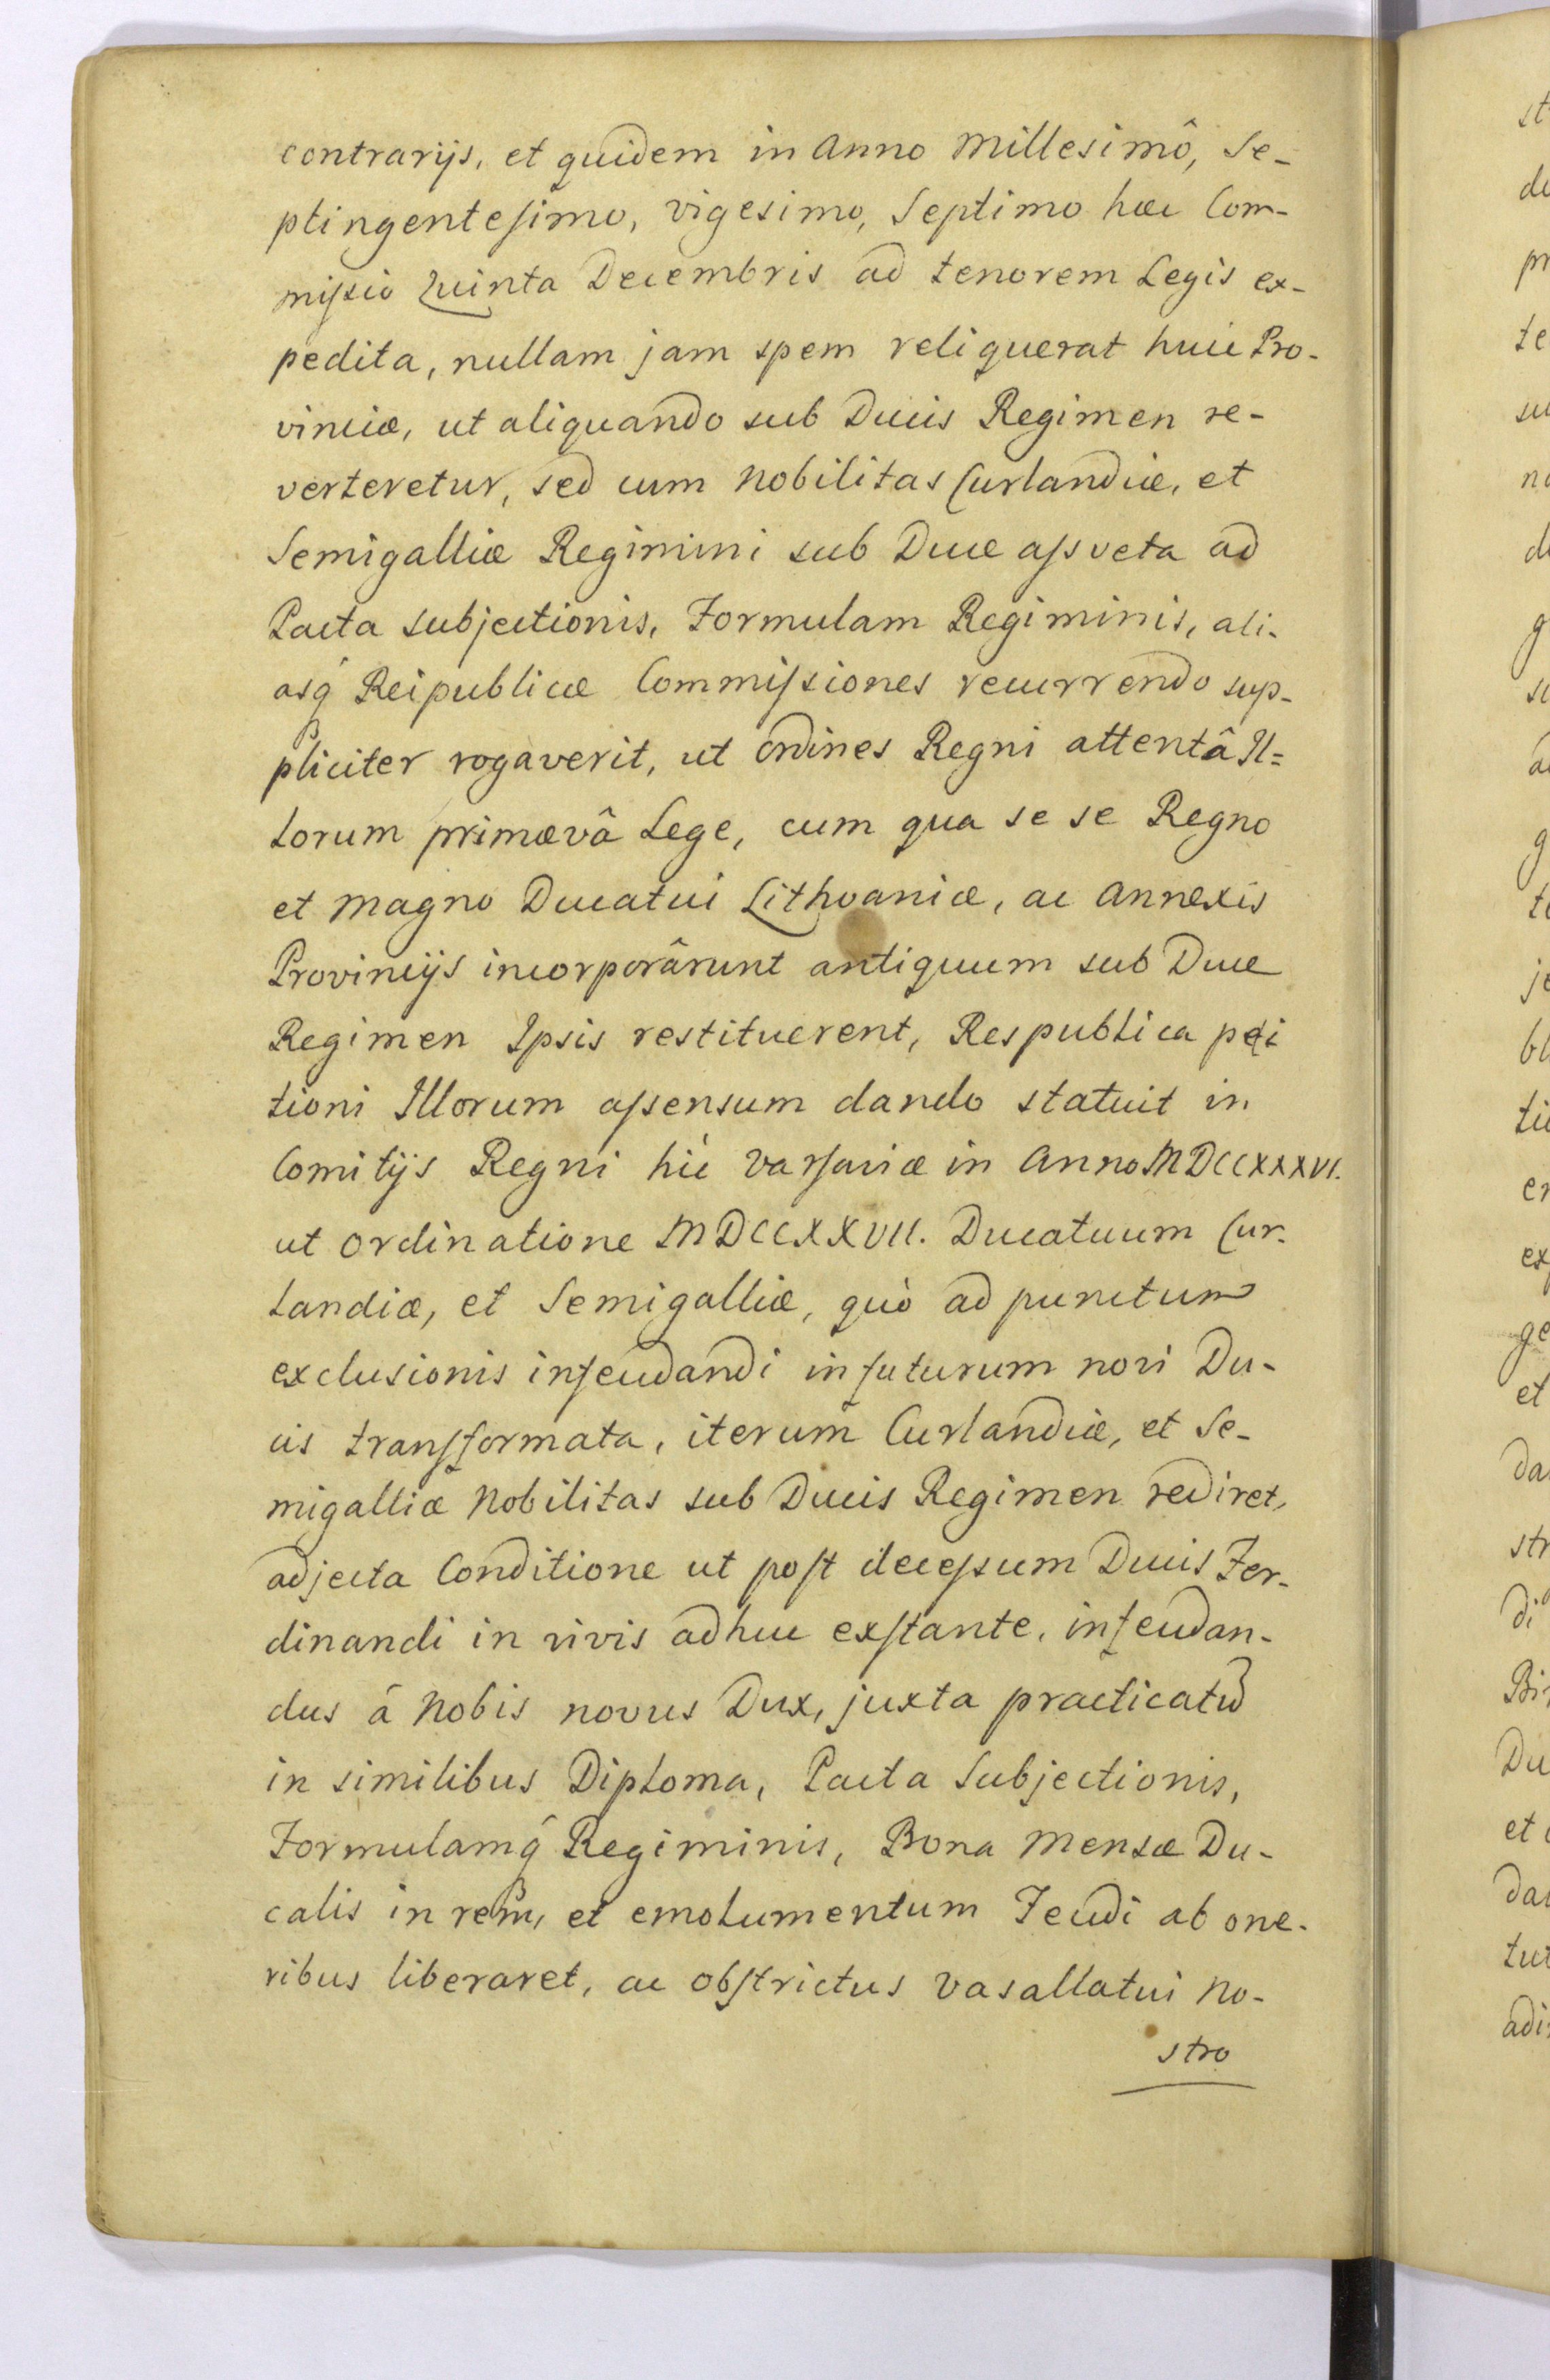 contrarijs, et quidem in Anno Millesimô, Se-
ptingentesimo, vigesimo, Septimo hæc Com-
missio Quinta Decembris ad tenorem Legis ex-
pedita, nullam jam spem reliquerat huic Pro-
vinciæ, ut aliquando sub Ducis Regimen re-
verteretur, sed cum Nobilitas Curlandiæ, et
Semigalliæ Regimini sub Duce assveta ad
Pacta subjectionis, Formulam Regiminis, ali-
asq́ Reipublicæ Commissiones recurrendo sup-
pliciter rogaverit, ut Ordines Regni attentâ Il=
lorum primævâ Lege, cum qua se se Regno
et Magno Ducatui Lithvaniæ, ac Annexis
Provincijs incorporârunt antiquum sub Duce
Regimen Ipsis restituerent, Respublica peti
tioni Illorum assensum dando statuit in
Comitijs Regni hic Varsaviæ in Anno MDCCXXXVI.
ut Ordinatione MDCCXXVII. Ducatuum Cur-
landiæ, et Semigalliæ, quò ad punctum
exclusionis infeudandi in futurum novi Du-
cis transformata, iterum Curlandiæ, et Se-
migalliæ Nobilitas sub Ducis Regimen rediret,
adjecta Conditione ut post decessum Ducis Fer-
dinandi in vivis adhuc exstante, infeudan-
dus á Nobis novus Dux, juxta practicatū
in similibus Diploma, Pacta Subjectionis,
Formulamq́ Regiminis, Bona Mensæ Du-
calis in rem, et emolumentum Feudi ab one-
ribus liberaret, ac obstrictus Vasallatui No-
stro